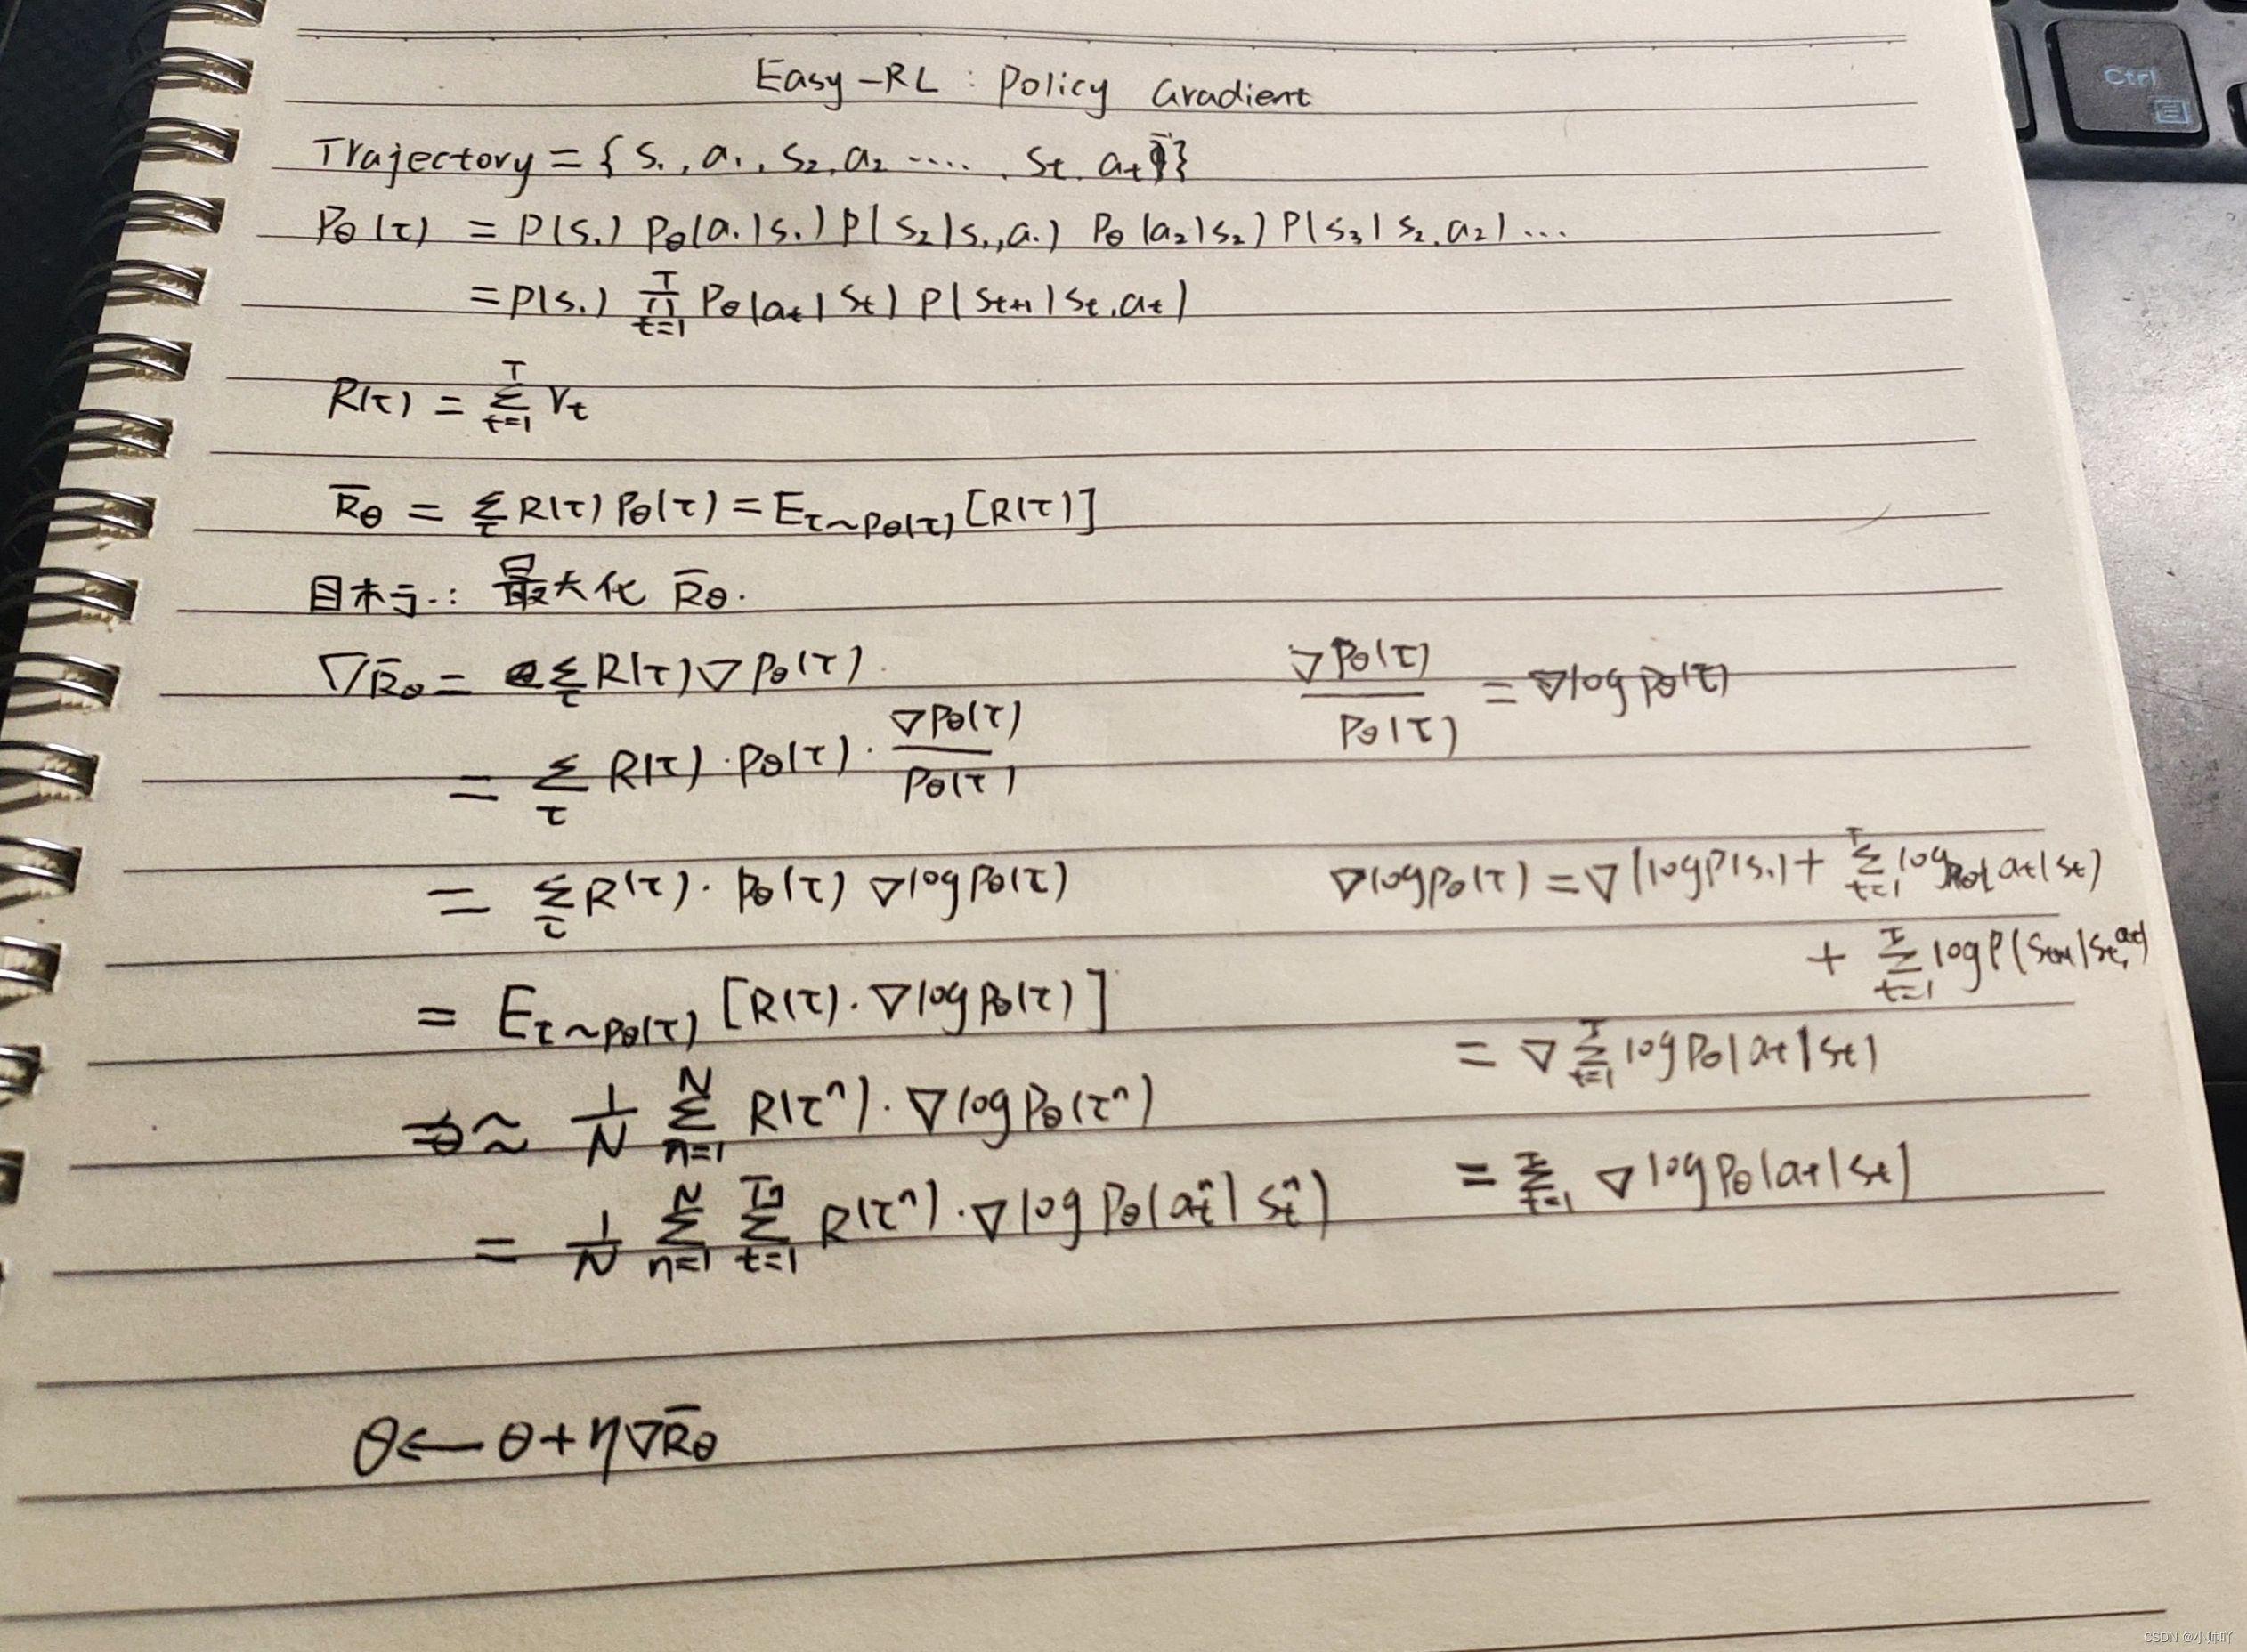 Easy-RL: Policy Gradient
Trajectory = {s₁, a₁, s₂, a₂ ....., sₜ, aₜ}
Pθ(τ) = P(s₁) Pθ(a₁|s₁) P(s₂|s₁,a₁) Pθ(a₂|s₂) P(s₃|s₂,a₂) ...
= P(s₁) ∏_{t=1}^{T} Pθ(aₜ|sₜ) P(sₜ₊₁|sₜ,aₜ)
R(τ) = Σ_{t=1}^{T} rₜ
R̄θ = Σ_τ R(τ) Pθ(τ) = E_{τ~Pθ(τ)} [R(τ)]
目标: 最大化 R̄θ.
∇R̄θ = Σ_τ R(τ) ∇Pθ(τ)
= Σ_τ R(τ) · Pθ(τ) · ∇Pθ(τ) / Pθ(τ)
= Σ_τ R(τ) · Pθ(τ) ∇log Pθ(τ)
= E_{τ~Pθ(τ)} [R(τ) · ∇log Pθ(τ)]
≈ 1/N Σ_{n=1}^{N} R(τⁿ) · ∇log Pθ(τⁿ)
= 1/N Σ_{n=1}^{N} Σ_{t=1}^{Tₙ} R(τⁿ) · ∇log Pθ(aₜⁿ|sₜⁿ)
∇Pθ(τ) / Pθ(τ) = ∇log Pθ(τ)
∇log Pθ(τ) = ∇(log P(s₁) + Σ_{t=1}^{T} log Pθ(aₜ|sₜ)
+ Σ_{t=1}^{T} log P(sₜ₊₁|sₜ,aₜ)
= ∇ Σ_{t=1}^{T} log Pθ(aₜ|sₜ)
= Σ_{t=1}^{T} ∇log Pθ(aₜ|sₜ)
θ ← θ + η∇R̄θ
Ctrl
CSDN @小帅吖